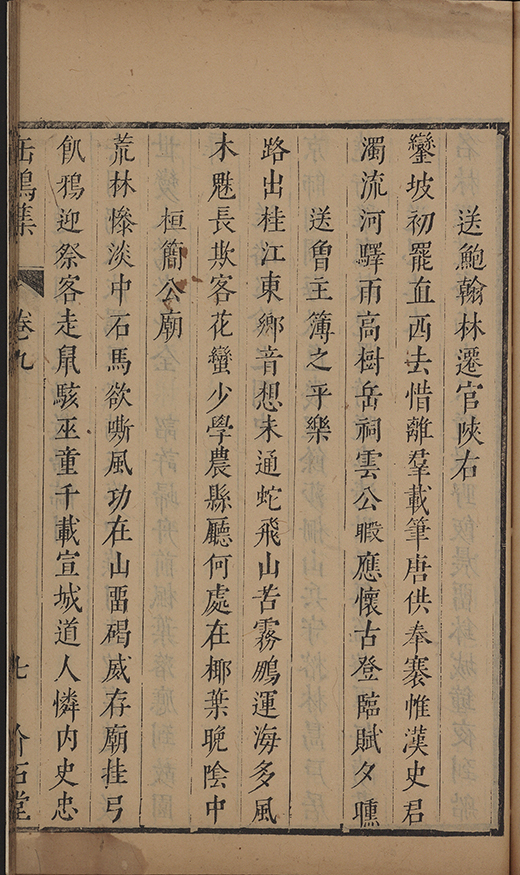 送鮑翰林遷官陝右
鑾坡初罷直西去惜離羣載筆唐供奉褰帷漢史君
濁流河驛雨高樹岳祠雲公暇應懷古登臨賦夕曛
送曾主簿之平樂
路出桂江東鄉音想未通蛇飛山苦霧鵬運海多風
木魅長欺客花蠻少學農縣廳何處在椰葉晚陰中
桓簡公廟
荒林慘淡中石馬欲嘶風功在山畱碣威存廟挂弓
飢鴉迎祭客走鼠駭巫童千載宣城道人憐內史忠
缶鳴集 卷九 七 介石堂